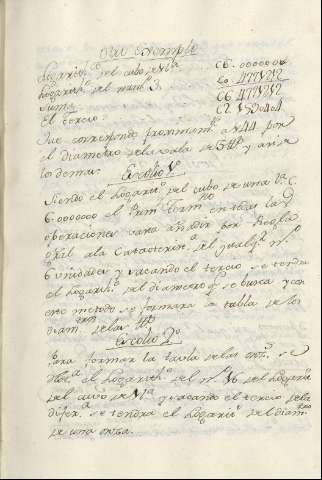 Otro Exemplo
Logarith.º del cubo de 1 la C6.0000000
Logarith.º del num.º 3. C0.4771212
Suma C6.4771212
El tercio C2.1590404
Que corresponde proximam.te a 144 por
el diametro de la vala de 3 y asi de
los demas.
Escolio 1.º
Siendo el Logarit.º del cubo de una
6.0000000 el prim.r term.no en todas las
operaciones vasta añadir por Regla
gral a la Caracteristica del qualq.r n.º
6 unidades y sacando el tercio se tendra
el Logarith.º del diametro q.e se busca y con
este metodo se formara la tabla de los
diam.tros de las
Escolio 2.º
Para formar la tavla de las onz.s se
el Logarith.º del n.º 16 del Logarit.º
del cuvo de 1 la y sacando el tercio de la
difer.a se tendra el Logarit.º del diam.tro
de una onza.